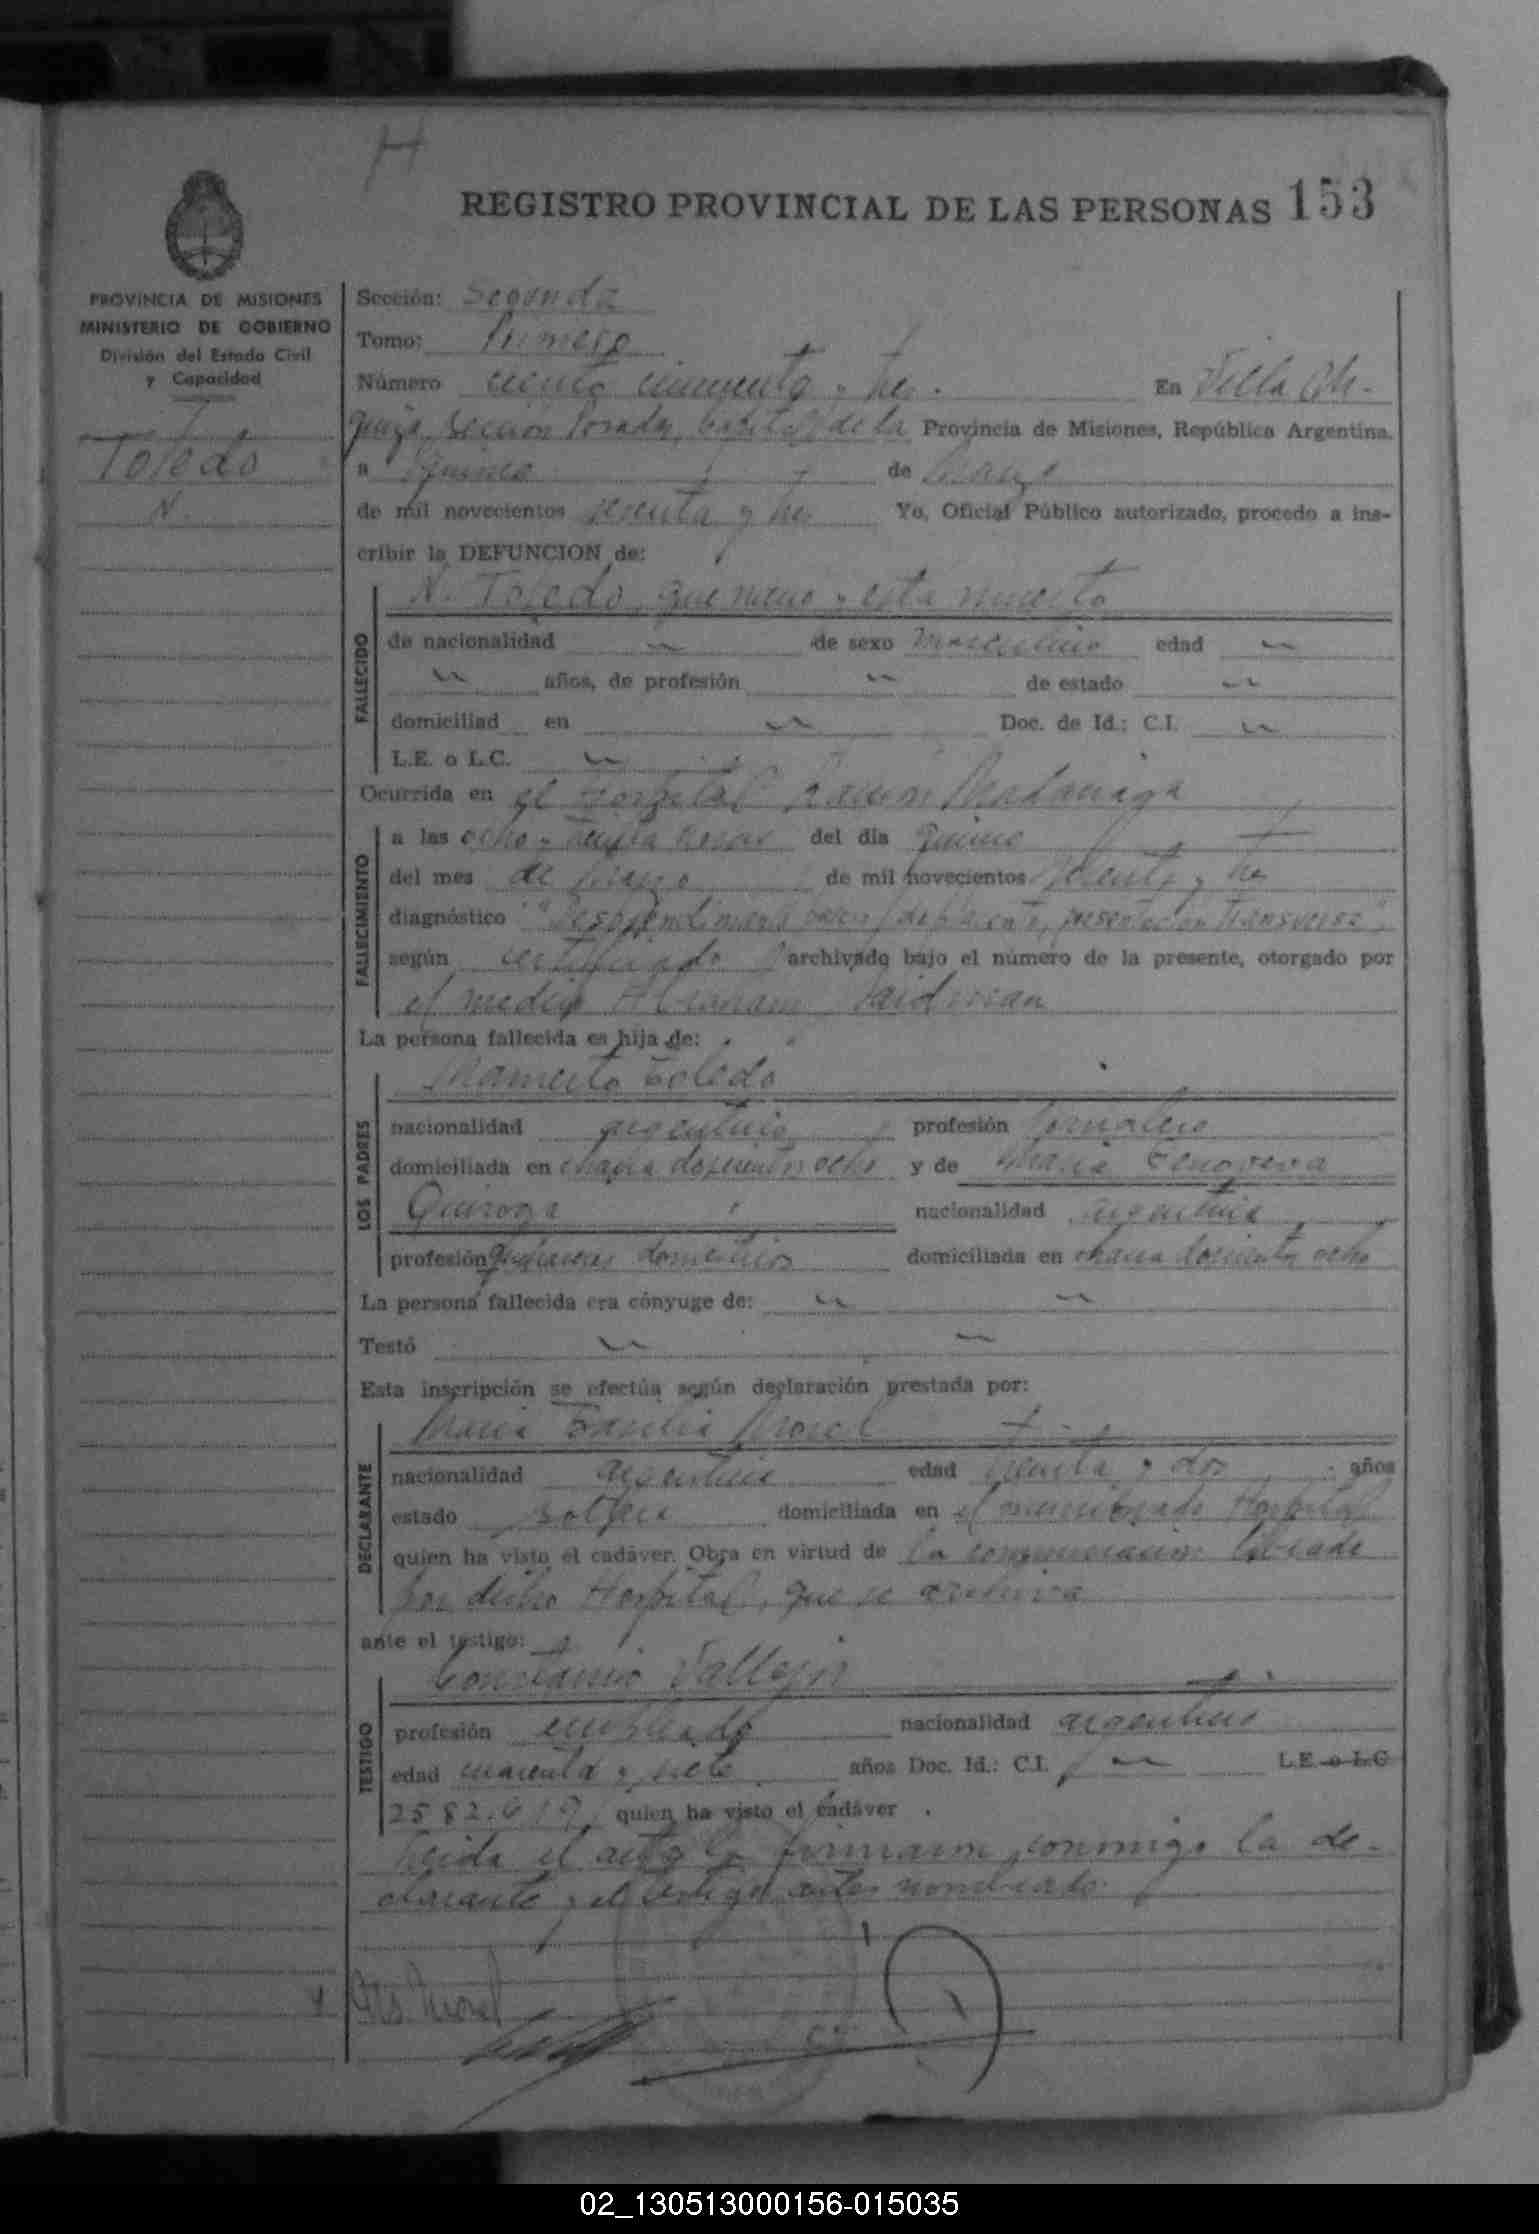 H
REGISTRO PROVINCIAL DE LAS PERSONAS 153
PROVINCIA DE MISIONES
MINISTERIO DE GOBIERNO
División del Estado Civil
y Capacidad
Toledo
N.
Sección: Segunda
Tomo: Primero
Número ciento cincuenta y tres. En Villa
Sección Posadas, Capital de la Provincia de Misiones, República Argentina,
a quince de Marzo
de mil novecientos sesenta y tres Yo, Oficial Público autorizado, procedo a ins-
cribir la DEFUNCION de:
N. Toledo, que nacio y esta muerto
FALLECIDO
de nacionalidad de sexo masculino edad
años, de profesión de estado
domiciliad en Doc. de Id.: C.I.
L.E. o L.C.
Ocurrida en el Hospital Ramón Madariaga
FALLECIMIENTO
a las ocho y treinta horas del día quince
del mes de Marzo de mil novecientos sesenta y tres
diagnóstico "Desprendimiento placenta, presentación transversa",
según certificado archivado bajo el número de la presente, otorgado por
el medico Abraham
La persona fallecida es hija de:
LOS PADRES
Mamerto Toledo
nacionalidad argentino profesión Jornalero
domiciliada en chacra doscientos ocho y de María Genoveva
Quiroga nacionalidad argentina
profesión quehaceres domesticos domiciliada en chacra doscientos ocho
La persona fallecida era cónyuge de:
Testó
Esta inscripción se efectúa según declaración prestada por:
DECLARANTE
María Morel
nacionalidad argentina edad treinta y dos años
estado soltera domiciliada en el mencionado Hospital
quien ha visto el cadáver. Obra en virtud de la comunicación librada
por dicho Hospital, que se archiva
ante el testigo:
TESTIGO
Constancio Vallejos
profesión empleado nacionalidad argentino
edad cuarenta y siete años Doc. Id.: C.I. L.E. o L.C
2582.619, quien ha visto el cadáver.
Leida el acta la firmaron conmigo la de-
clarante y el testigo antes nombrado.
Morel
02_130513000156-015035